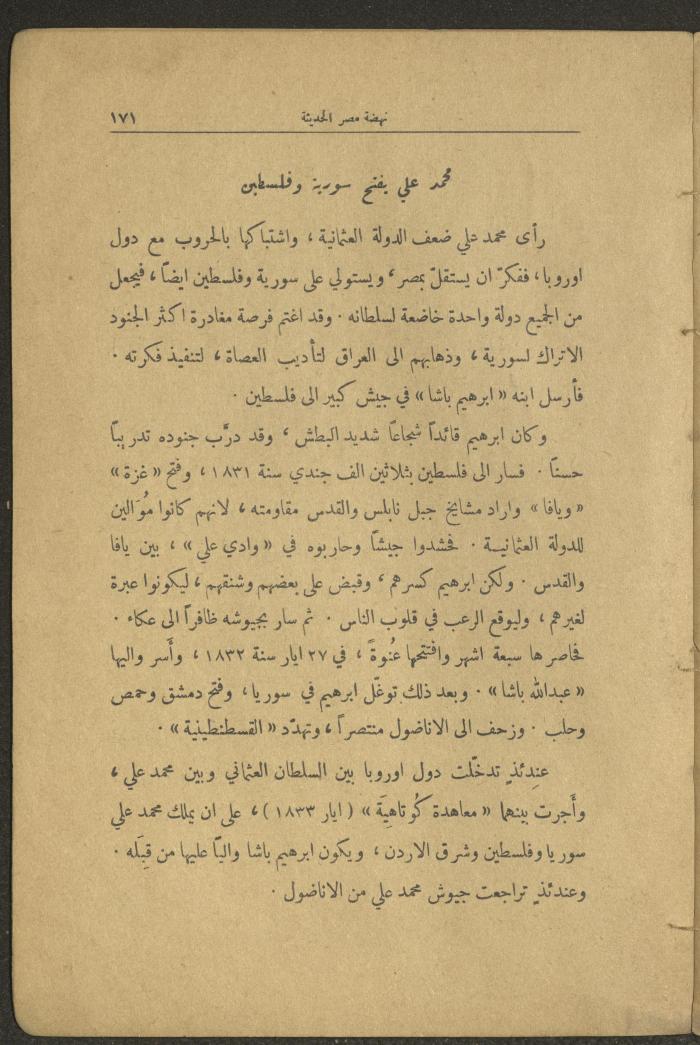 نهضة مصر الحديثة ١٧١
محمد علي يفتح سورية وفلسطين
رأى محمد علي ضعف الدولة العثمانية ، واشتباكها بالحروب مع دول
اوروبا ، ففكرّ ان يستقلّ بمصر ، ويستولي على سورية وفلسطين ايضاً ، فيجعل
من الجميع دولة واحدة خاضعة لسلطانه . وقد اغتم فرصة مغادرة اكثر الجنود
الاتراك لسورية ، وذهابهم الى العراق لتأديب العصاة ، لتنفيذ فكرته .
فأرسل ابنه « ابرهيم باشا » في جيش كبير الى فلسطين .
وكان ابرهيم قائداً شجاعاً شديد البطش ، وقد درَّب جنوده تدريباً
حسناً . فسار الى فلسطين بثلاثين الف جندي سنة ١٨٣١ ، وفتح « غزة »
« ويافا » واراد مشايخ جبل نابلس والقدس مقاومته ، لانهم كانوا مُوَالين
للدولة العثمانيـة . فحشدوا جيشاً وحاربوه في « وادي علي » ، بين يافا
والقدس . ولكن ابرهيم كسرهم ، وقبض على بعضهم وشنقهم ، ليكونوا عبرة
لغيرهم ، وليوقع الرعب في قلوب الناس . ثم سار بجيوشه ظافراً الى عكاء .
فحاصرها سبعة اشهر وافتتحها عُنوةً ، في ٢٧ ايار سنة ١٨٣٢ ، وأَسر واليها
« عبدالله باشا » . وبعد ذلك توغّل ابرهيم في سوريا ، وفتح دمشق وحمص
وحلب . وزحف الى الاناضول منتصراً ، وتهدّد « القسطنطينية » .
عندئذٍ تدخّلت دول اوروبا بين السلطان العثماني وبين محمد علي ،
وأَجرت بينهما « معاهدة كُوتاهيَة » ( ايار ١٨٣٣ ) ، على ان يملك محمد علي
سوريا وفلسطين وشرق الاردن ، ويكون ابرهيم باشا والياً عليها من قِبَله .
وعندئذٍ تراجعت جيوش محمد علي من الاناضول .